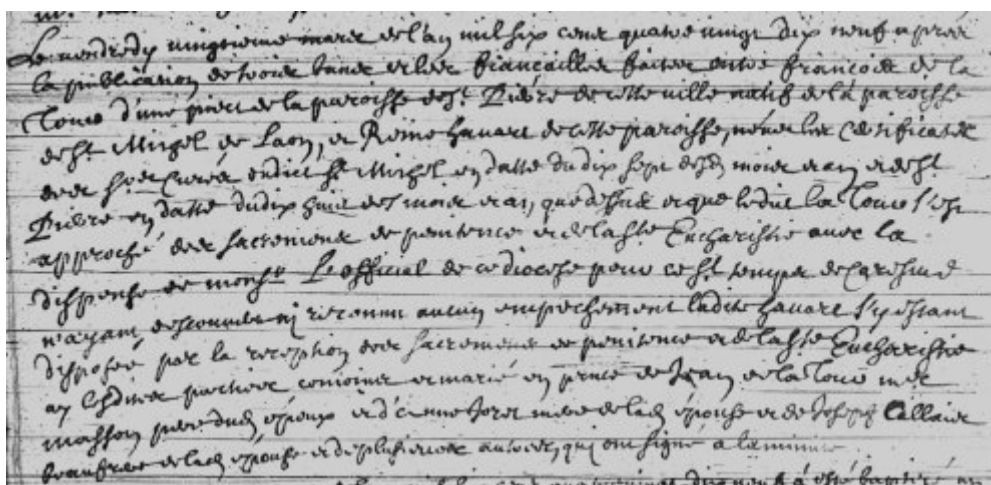 Le vendredy vingtieme mars de l'an mil six cent quatre vingt dix neuf apres
la publication de trois bancs et les fiançailles faites entre françois de la
Tour d'une part de la paroisse de St. Pierre de cette ville natif de la paroisse
de St Michel de Laon, et Reine havart de cette paroisse, veu les Certificats
des Srs Curés dudict St Michel en datte du dix sept desd mois et an et de St
Pierre en datte du dix huit des mois et an, que dessus et que ledit la Tour s'est
approché des sacremens de penitence et de la Ste Eucharistie avec la
dispense de monsr L'official de ce diocese pour ce St temps de Caresme
n'ayant descouvert ni reconnu aucun empechement ladite havart s'y estant
disposée par la reception des sacremens de penitence et de la Ste Eucharistie
ay lesdites parties conioint et marié en pnce de Jean de la Tour mtre
masson pere dud époux et d'anne mere de lad épouse et de Joseph Lallair
beaufrere de lad épouse et de plusieurs autres, qui ont signé a la minute
a esté baptisé